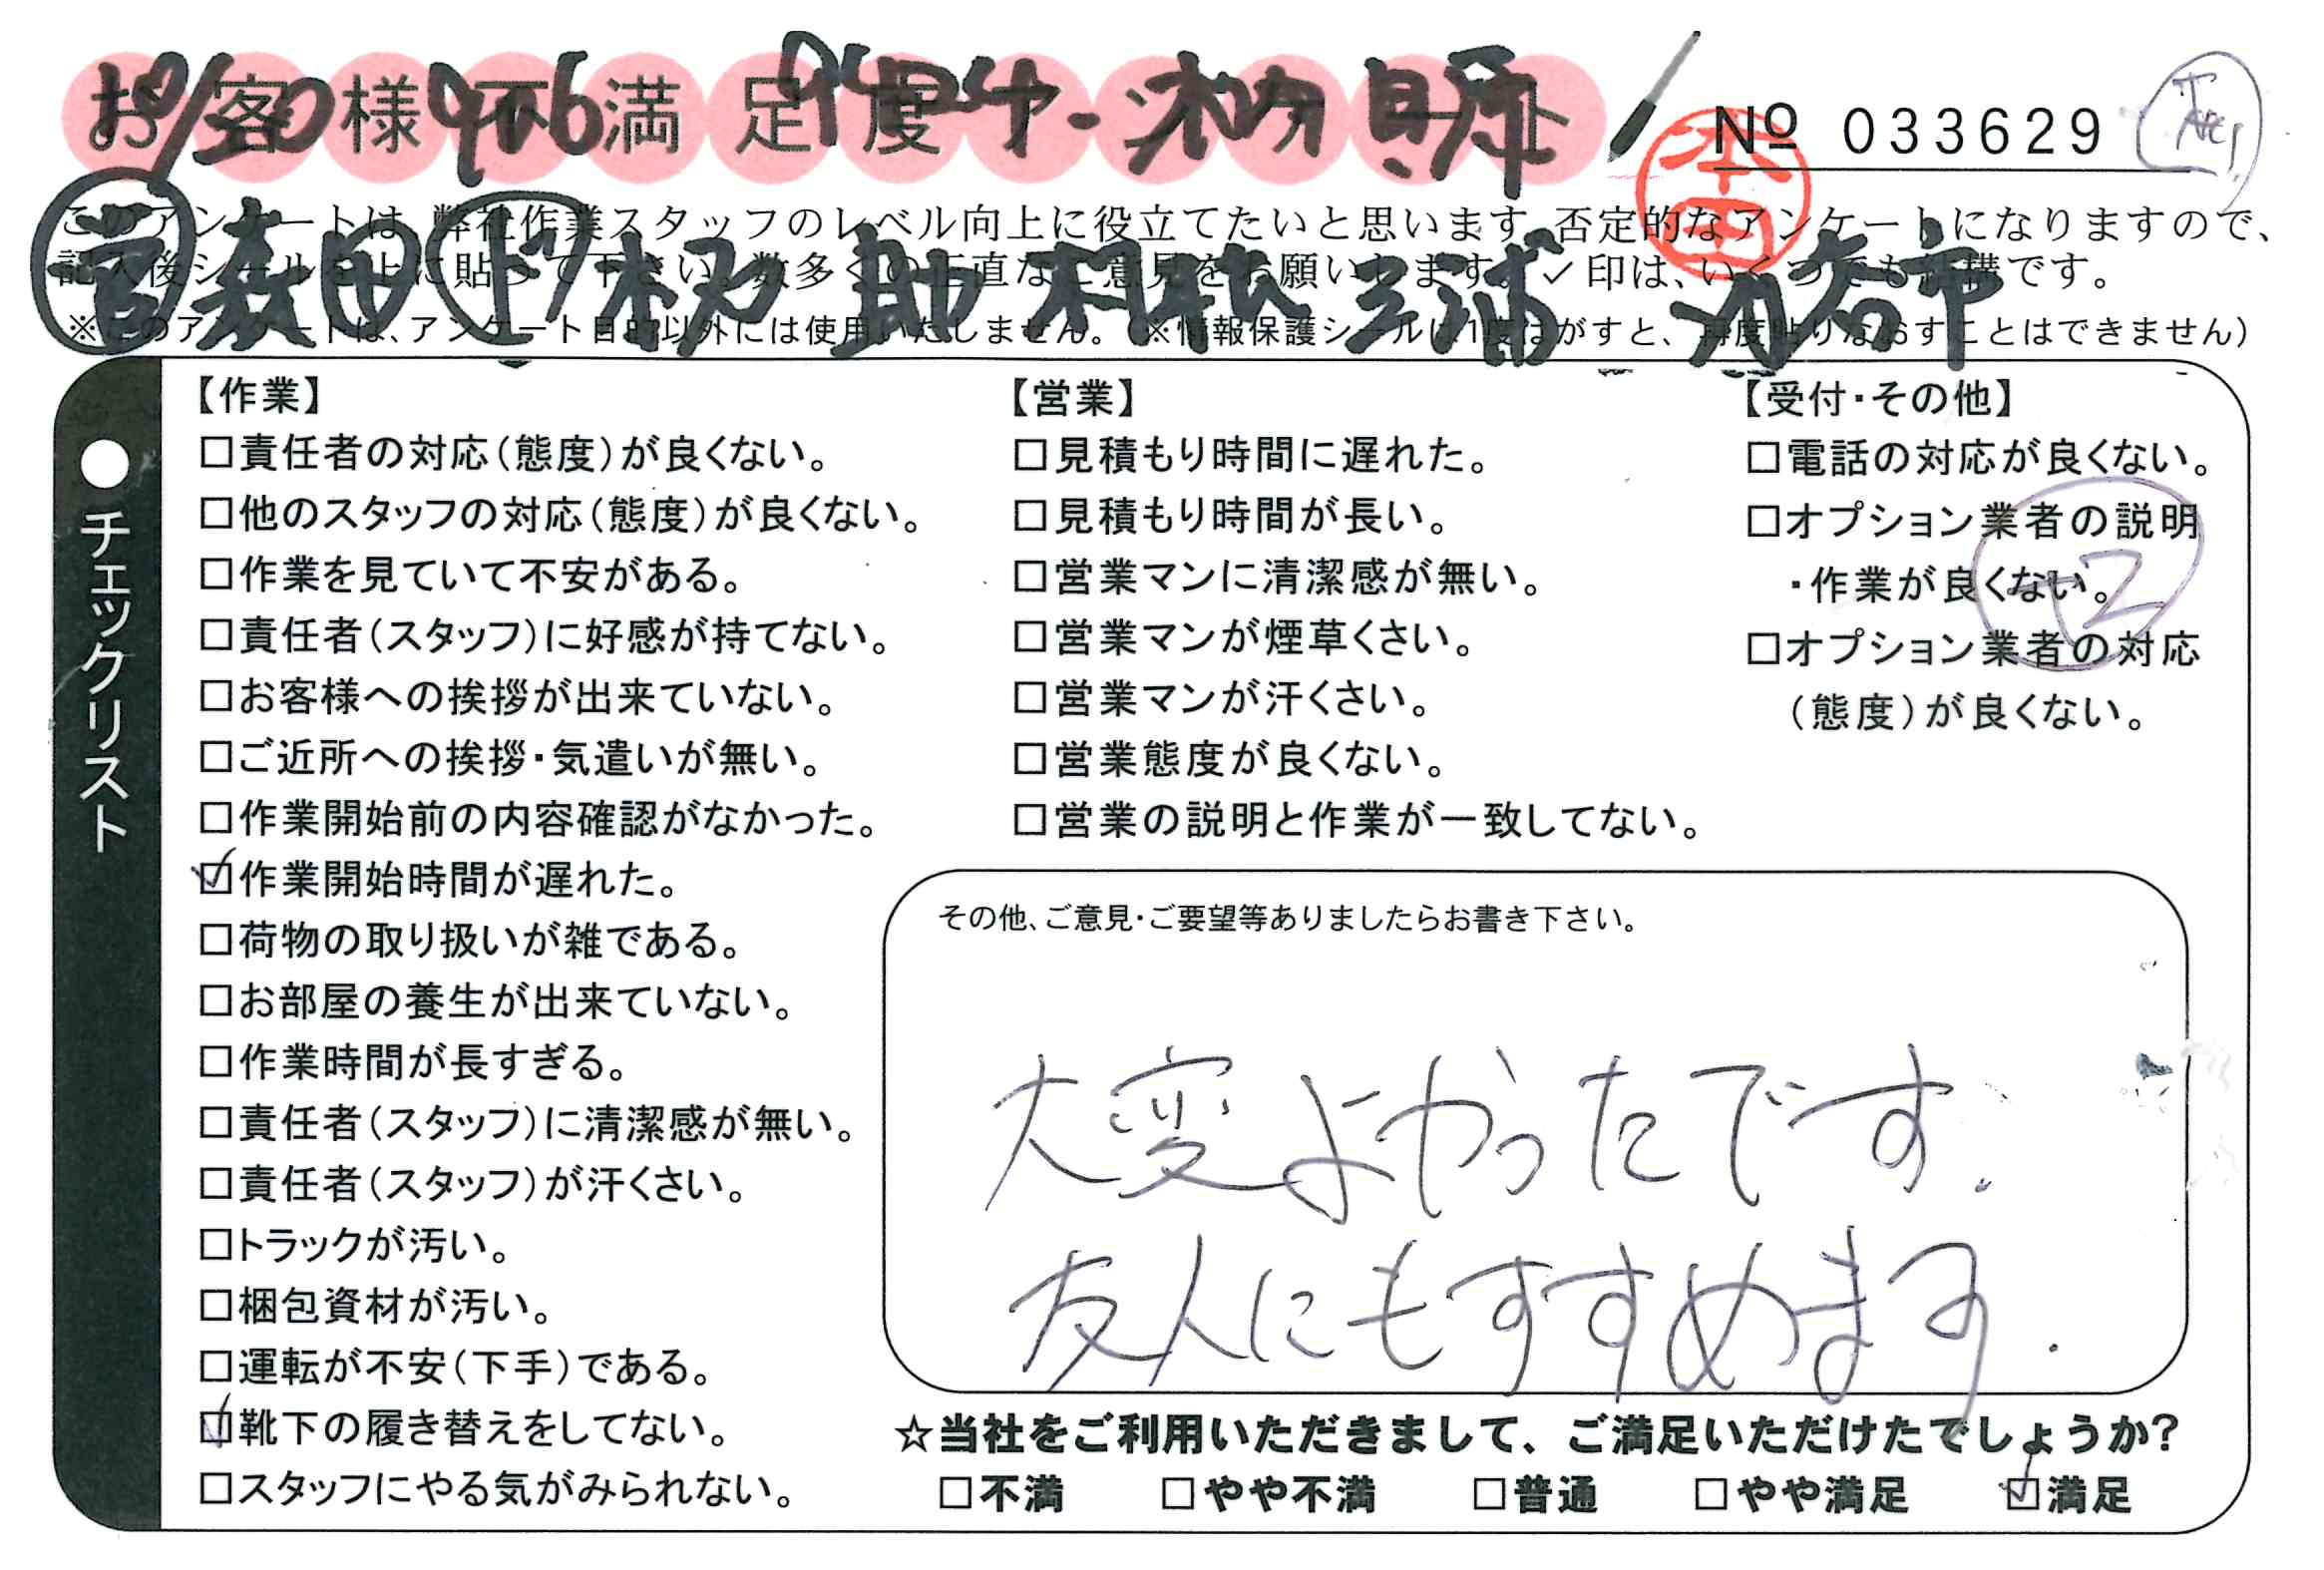 お客様不満足度アンケート
№ 033629
本田
このアンケートは、弊社作業スタッフのレベル向上に役立てたいと思います。否定的なアンケートになりますので、
記入後シールを上に貼って下さい。数多くの正直なご意見をお願いします。✓印は、いくつでも結構です。
※このアンケートは、アンケート目的以外には使用いたしません。(※情報保護シールは1度はがすと、再度貼りなおすことはできません)
営 森田 助 三浦
●チェックリスト
【作業】
□責任者の対応(態度)が良くない。
□他のスタッフの対応(態度)が良くない。
□作業を見ていて不安がある。
□責任者(スタッフ)に好感が持てない。
□お客様への挨拶が出来ていない。
□ご近所への挨拶・気遣いが無い。
□作業開始前の内容確認がなかった。
☑作業開始時間が遅れた。
□荷物の取り扱いが雑である。
□お部屋の養生が出来ていない。
□作業時間が長すぎる。
□責任者(スタッフ)に清潔感が無い。
□責任者(スタッフ)が汗くさい。
□トラックが汚い。
□梱包資材が汚い。
□運転が不安(下手)である。
☑靴下の履き替えをしてない。
□スタッフにやる気がみられない。
【営業】
□見積もり時間に遅れた。
□見積もり時間が長い。
□営業マンに清潔感が無い。
□営業マンが煙草くさい。
□営業マンが汗くさい。
□営業態度が良くない。
□営業の説明と作業が一致してない。
【受付・その他】
□電話の対応が良くない。
□オプション業者の説明
・作業が良くない。
□オプション業者の対応
(態度)が良くない。
+2
その他、ご意見・ご要望等ありましたらお書き下さい。
大変よかったです.
友人にもすすめます.
☆当社をご利用いただきまして、ご満足いただけたでしょうか?
□不満 □やや不満 □普通 □やや満足 ☑満足